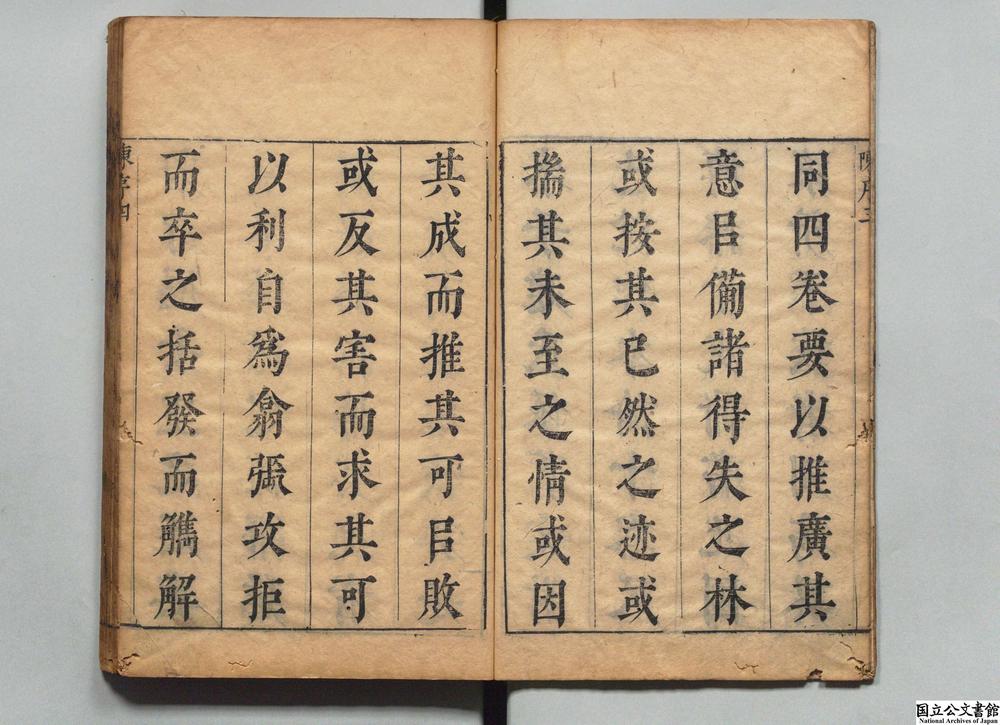 陳序三
同四卷要以推廣其
意㠯備諸得失之林
或按其已然之迹或
揣其未至之情或因
其成而推其可㠯敗
或反其害而求其可
以利自爲翕張攻拒
而卒之括發而觽解
陳序四
国立公文書館
National Archives of Japan